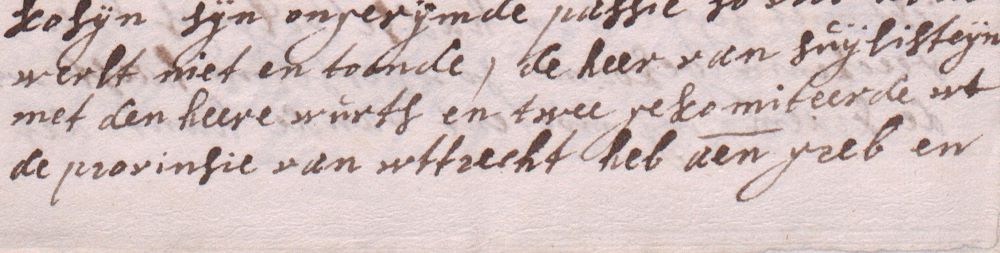 kosijn sijn ongerijmde passie so
werlt niet en toonde, de heer van suijlisteijn
met den heere wurts en twee gekomiteerde wt
de provinsie van wttrecht heb aen greb en